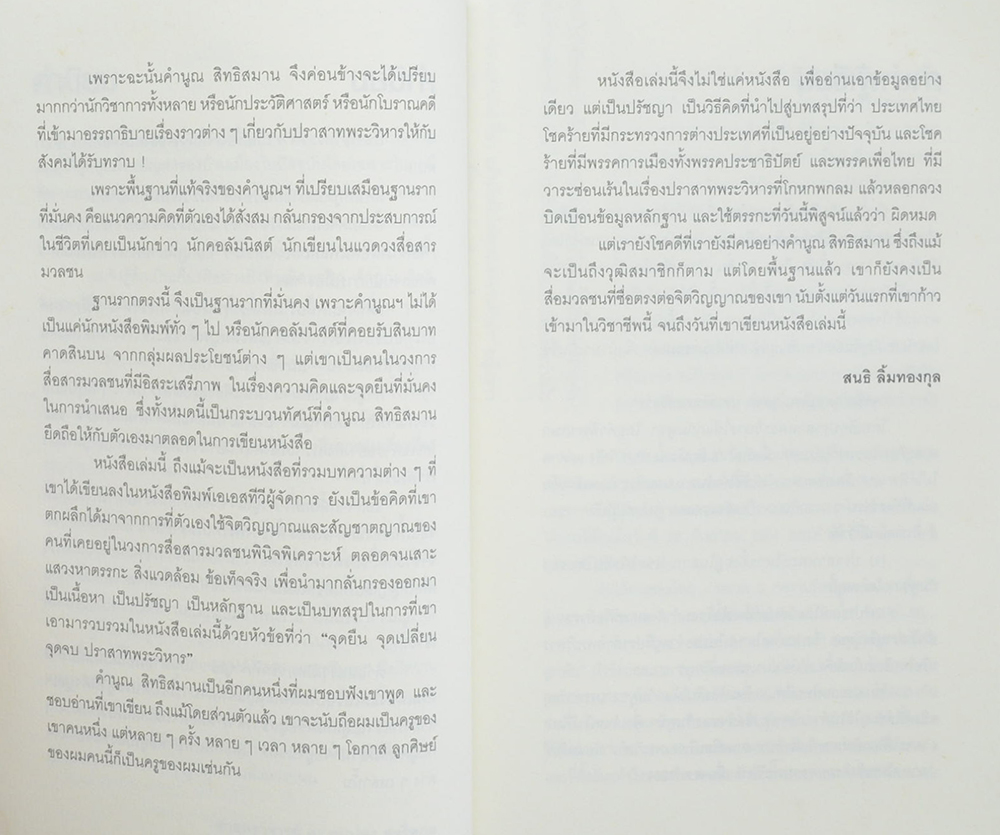 เพราะฉะนั้นคำนูณ สิทธิสมาน จึงค่อนข้างจะได้เปรียบ
มากกว่านักวิชาการทั้งหลาย หรือนักประวัติศาสตร์ หรือนักโบราณคดี
ที่เข้ามาอรรถาธิบายเรื่องราวต่าง ๆ เกี่ยวกับปราสาทพระวิหารให้กับ
สังคมได้รับทราบ !
เพราะพื้นฐานที่แท้จริงของคำนูณฯ ที่เปรียบเสมือนฐานราก
ที่มั่นคง คือแนวความคิดที่ตัวเองได้สั่งสม กลั่นกรองจากประสบการณ์
ในชีวิตที่เคยเป็นนักข่าว นักคอลัมนิสต์ นักเขียนในแวดวงสื่อสาร
มวลชน
ฐานรากตรงนี้ จึงเป็นฐานรากที่มั่นคง เพราะคำนูณฯ ไม่ได้
เป็นแค่นักหนังสือพิมพ์ทั่ว ๆ ไป หรือนักคอลัมนิสต์ที่คอยรับสินบาท
คาดสินบน จากกลุ่มผลประโยชน์ต่าง ๆ แต่เขาเป็นคนในวงการ
สื่อสารมวลชนที่มีอิสระเสรีภาพ ในเรื่องความคิดและจุดยืนที่มั่นคง
ในการนำเสนอ ซึ่งทั้งหมดนี้เป็นกระบวนทัศน์ที่คำนูณ สิทธิสมาน
ยึดถือให้กับตัวเองมาตลอดในการเขียนหนังสือ
หนังสือเล่มนี้ ถึงแม้จะเป็นหนังสือที่รวมบทความต่าง ๆ ที่
เขาได้เขียนลงในหนังสือพิมพ์เอเอสทีวีผู้จัดการ ยังเป็นข้อคิดที่เขา
ตกผลึกได้มาจากการที่ตัวเองใช้จิตวิญญาณและสัญชาตญาณของ
คนที่เคยอยู่ในวงการสื่อสารมวลชนพินิจพิเคราะห์ ตลอดจนเสาะ
แสวงหาตรรกะ สิ่งแวดล้อม ข้อเท็จจริง เพื่อนำมากลั่นกรองออกมา
เป็นเนื้อหา เป็นปรัชญา เป็นหลักฐาน และเป็นบทสรุปในการที่เขา
เอามารวบรวมในหนังสือเล่มนี้ด้วยหัวข้อที่ว่า “จุดยืน จุดเปลี่ยน
จุดจบ ปราสาทพระวิหาร”
คำนูณ สิทธิสมานเป็นอีกคนหนึ่งที่ผมชอบฟังเขาพูด และ
ชอบอ่านที่เขาเขียน ถึงแม้โดยส่วนตัวแล้ว เขาจะนับถือผมเป็นครูของ
เขาคนหนึ่ง แต่หลาย ๆ ครั้ง หลาย ๆ เวลา หลาย ๆ โอกาส ลูกศิษย์
ของผมคนนี้ก็เป็นครูของผมเช่นกัน
หนังสือเล่มนี้จึงไม่ใช่แค่หนังสือ เพื่ออ่านเอาข้อมูลอย่าง
เดียว แต่เป็นปรัชญา เป็นวิธีคิดที่นำไปสู่บทสรุปที่ว่า ประเทศไทย
โชคร้ายที่มีกระทรวงการต่างประเทศที่เป็นอยู่อย่างปัจจุบัน และโชค
ร้ายที่มีพรรคการเมืองทั้งพรรคประชาธิปัตย์ และพรรคเพื่อไทย ที่มี
วาระซ่อนเร้นในเรื่องปราสาทพระวิหารที่โกหกพกลม แล้วหลอกลวง
บิดเบือนข้อมูลหลักฐาน และใช้ตรรกะที่วันนี้พิสูจน์แล้วว่า ผิดหมด
แต่เรายังโชคดีที่เรายังมีคนอย่างคำนูณ สิทธิสมาน ซึ่งถึงแม้
จะเป็นถึงวุฒิสมาชิกก็ตาม แต่โดยพื้นฐานแล้ว เขาก็ยังคงเป็น
สื่อมวลชนที่ซื่อตรงต่อจิตวิญญาณของเขา นับตั้งแต่วันแรกที่เขาก้าว
เข้ามาในวิชาชีพนี้ จนถึงวันที่เขาเขียนหนังสือเล่มนี้
สนธิ ลิ้มทองกุล